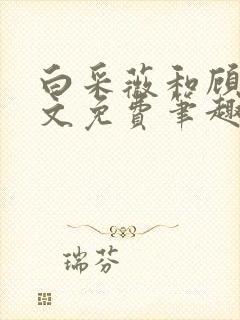 白采薇和顾
文免费笔趣
瑞芬